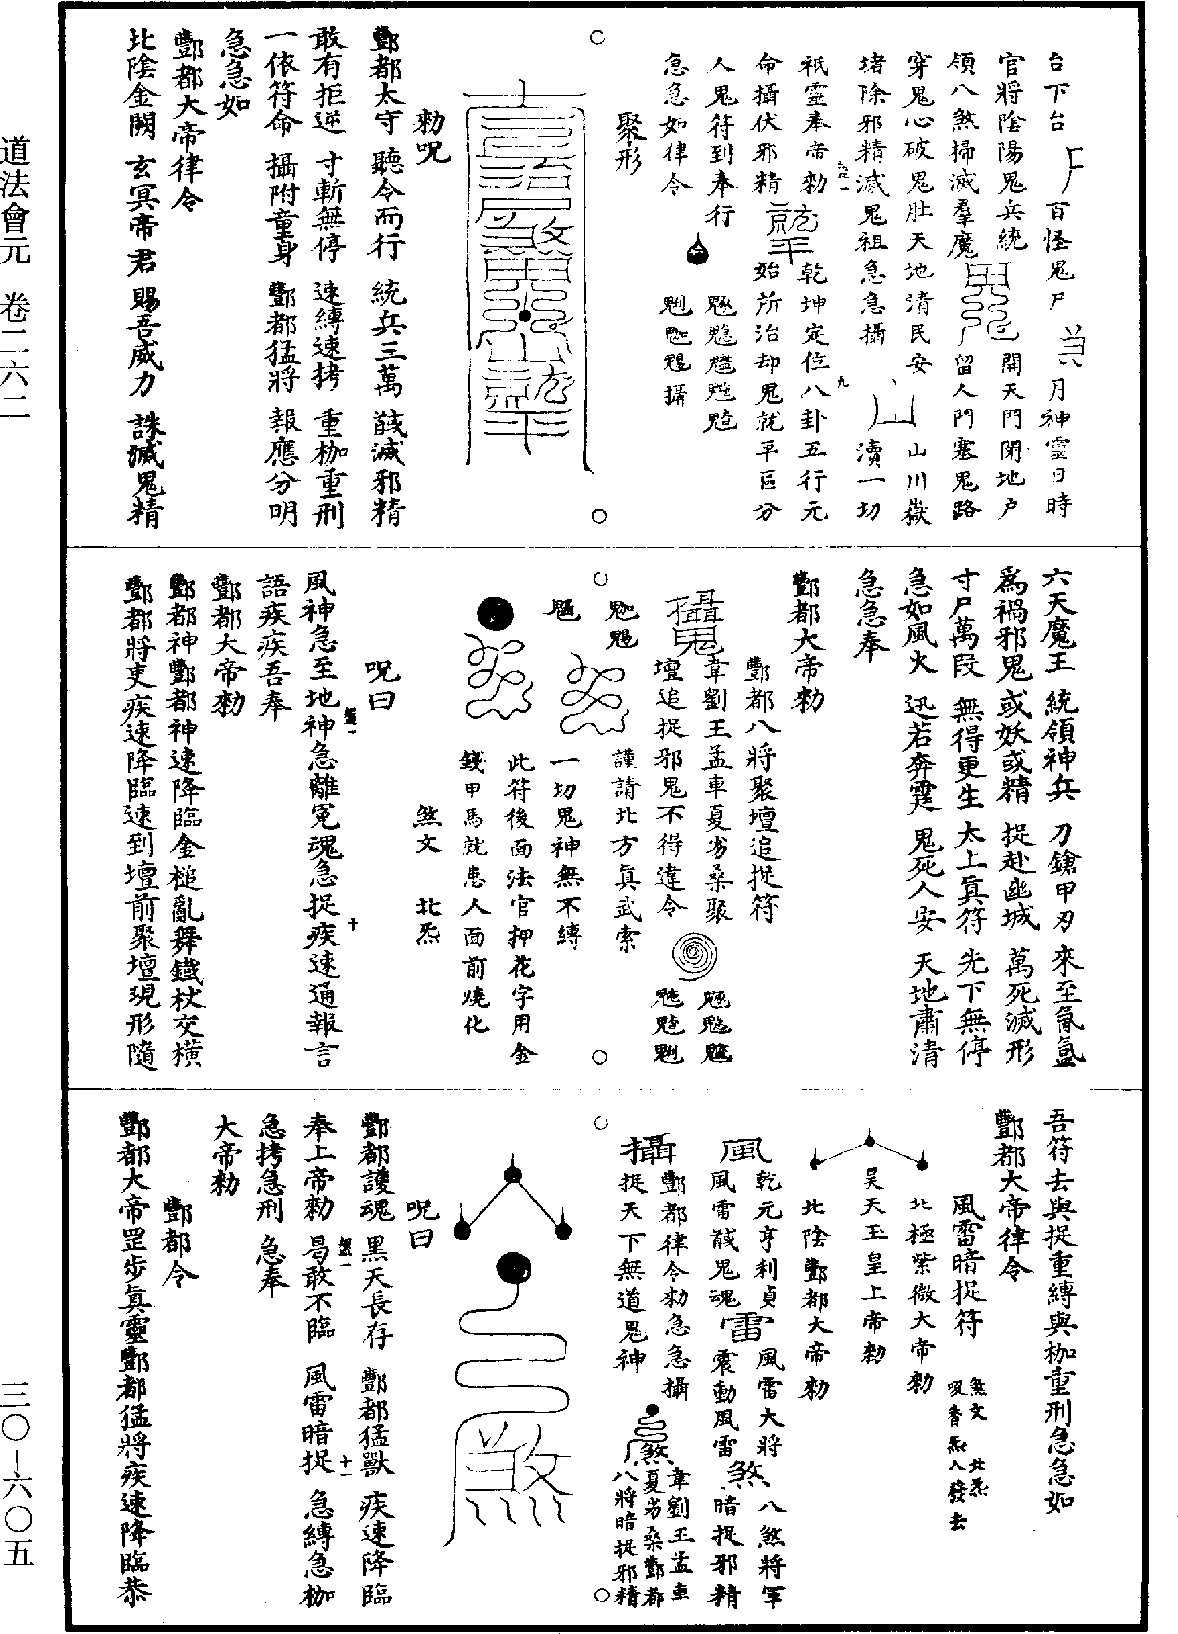 道法會元　卷二六二
三〇—六〇五
台下台
百怪鬼尸
月神靈日時
官將陰陽鬼兵統
開天門閉地戶
領八煞掃滅羣魔
留人門塞鬼路
穿鬼心破鬼肚天地清民安
山川嶽
堵除邪精滅鬼祖急急攝
瀆一切
祇靈奉帝勑
乾坤定位八卦五行元
命攝伏邪精
始所治却鬼就平區分
人鬼符到奉行
急急如律令
聚形
勑呪
酆都太守　聽令而行　統兵三萬　馘滅邪精
敢有拒逆　寸斬無停　速縛速拷　重枷重刑
一依符命　攝附童身　酆都猛將　報應分明
急急如
酆都大帝律令
北陰金闕　玄冥帝君　賜吾威力　誅滅鬼精
六天魔王　統領神兵　刀鎗甲刃　來至氤氳
為禍邪鬼　或妖或精　捉赴幽城　萬死滅形
寸尸萬段　無得更生　太上真符　先下無停
急如風火　迅若奔霆　鬼死人安　天地肅清
急急奉
酆都大帝勑
酆都八將聚壇追捉符
攝鬼
韋劉王孟車夏㓜桑聚
壇追捉邪鬼不得違令
謹請北方真武索
一切鬼神無不縛
此符後面法官押花字用金
錢甲馬就患人面前燒化
煞文　北炁
呪曰
風神急至地神急離冤魂急捉疾速通報言
語疾疾吾奉
酆都大帝勑
酆都神酆都神速降臨金槌亂舞鐵杖交橫
酆都將吏疾速降臨速到壇前聚壇現形隨
吾符去與捉重縛與枷重刑急急如
酆都大帝律令
風雷暗捉符
煞文　北炁
吸香炁入發去
北極紫微大帝勑
昊天玉皇上帝勑
北陰酆都大帝勑
風
乾元亨利貞
風雷馘鬼魂
雷
風雷大將
震動風雷
煞
八煞將軍
暗捉邪精
攝
酆都律令勑急急攝
捉天下無道鬼神
煞
韋劉王孟車
夏㓜桑酆都
八將暗捉邪精
煞
呪曰
酆都護魂　黑天長存　酆都猛獸　疾速降臨
奉上帝勑　曷敢不臨　風雷暗捉　急縛急枷
急拷急刑　急奉
大帝勑
酆都令
酆都大帝罡步真靈酆都猛將疾速降臨恭